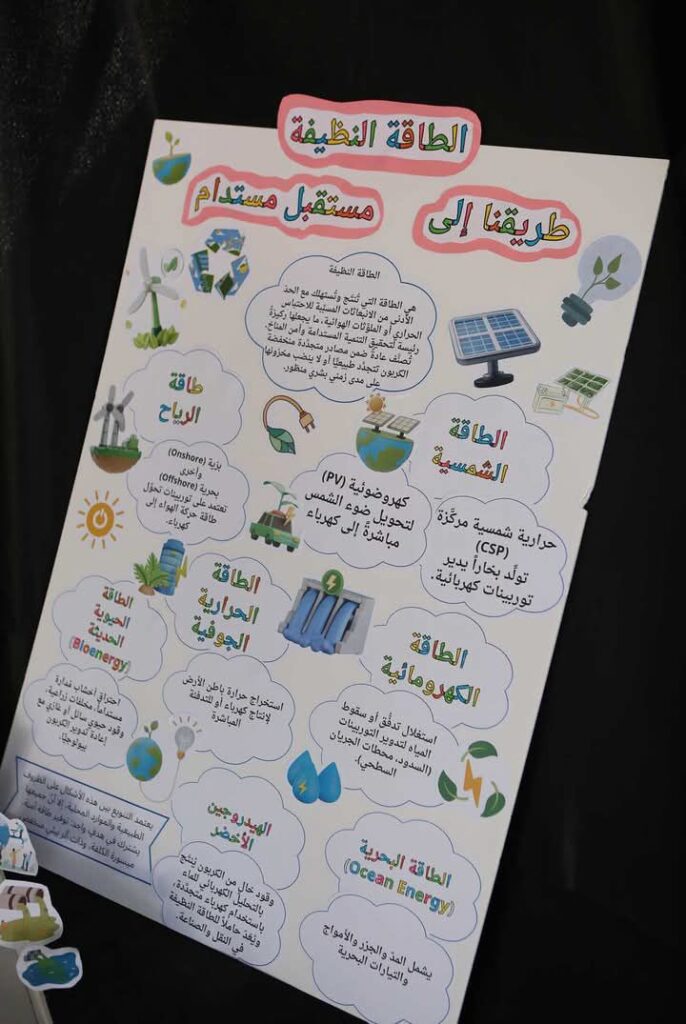 الطاقة النظيفة
طريقنا إلى
مستقبل مستدام
الطاقة النظيفة
هي الطاقة التي تُنتَج وتُستهلك مع الحدّ
الأدنى من الانبعاثات المسبّبة للاحتباس
الحراري أو الملوّثات الهوائية، ما يجعلها ركيزةً
رئيسة لتحقيق التنمية المستدامة وأمن المناخ.
تُصنَّف عادةً ضمن مصادر متجدّدة منخفضة
الكربون تتجدّد طبيعيًا أو لا ينضب مخزونها
على مدى زمني بشري منظور.
الطاقة
الشمسية
حرارية شمسية مركَّزة
(CSP)
تولّد بخاراً يدير
توربينات كهربائية.
كهروضوئية (PV)
لتحويل ضوء الشمس
مباشرةً إلى كهرباء
طاقة
الرياح
برّية (Onshore)
وأخرى
بحرية (Offshore)
تعتمد على توربينات تحوّل
طاقة حركة الهواء إلى
كهرباء.
الطاقة
الكهرومائية
استغلال تدفُّق أو سقوط
المياه لتدوير التوربينات
(السدود، محطات الجريان
السطحي).
الطاقة
الحرارية
الجوفية
استخراج حرارة باطن الأرض
لإنتاج كهرباء أو للتدفئة
المباشرة
الطاقة
الحيوية
الحديثة
(Bioenergy)
احتراق أخشاب مُدارة
مستداماً، مخلفات زراعية،
وقود حيوي سائل أو غازي مع
إعادة تدوير الكربون
بيولوجيًا.
الطاقة البحرية
(Ocean Energy)
يشمل المدّ والجزر والأمواج
والتيارات البحرية
الهيدروجين
الأخضر
وقود خالٍ من الكربون يُنتَج
بالتحليل الكهربائي للماء
باستخدام كهرباء متجدّدة،
ويُعَدّ حاملاً للطاقة النظيفة
في النقل والصناعة.
يعتمد التنويع بين هذه الأشكال على الظروف
الطبيعية والموارد المحلية، إلا أنّ جميعها
يشترك في هدفٍ واحد: توفير طاقة آمنة،
ميسورة الكلفة، وذات أثر بيئي منخفض